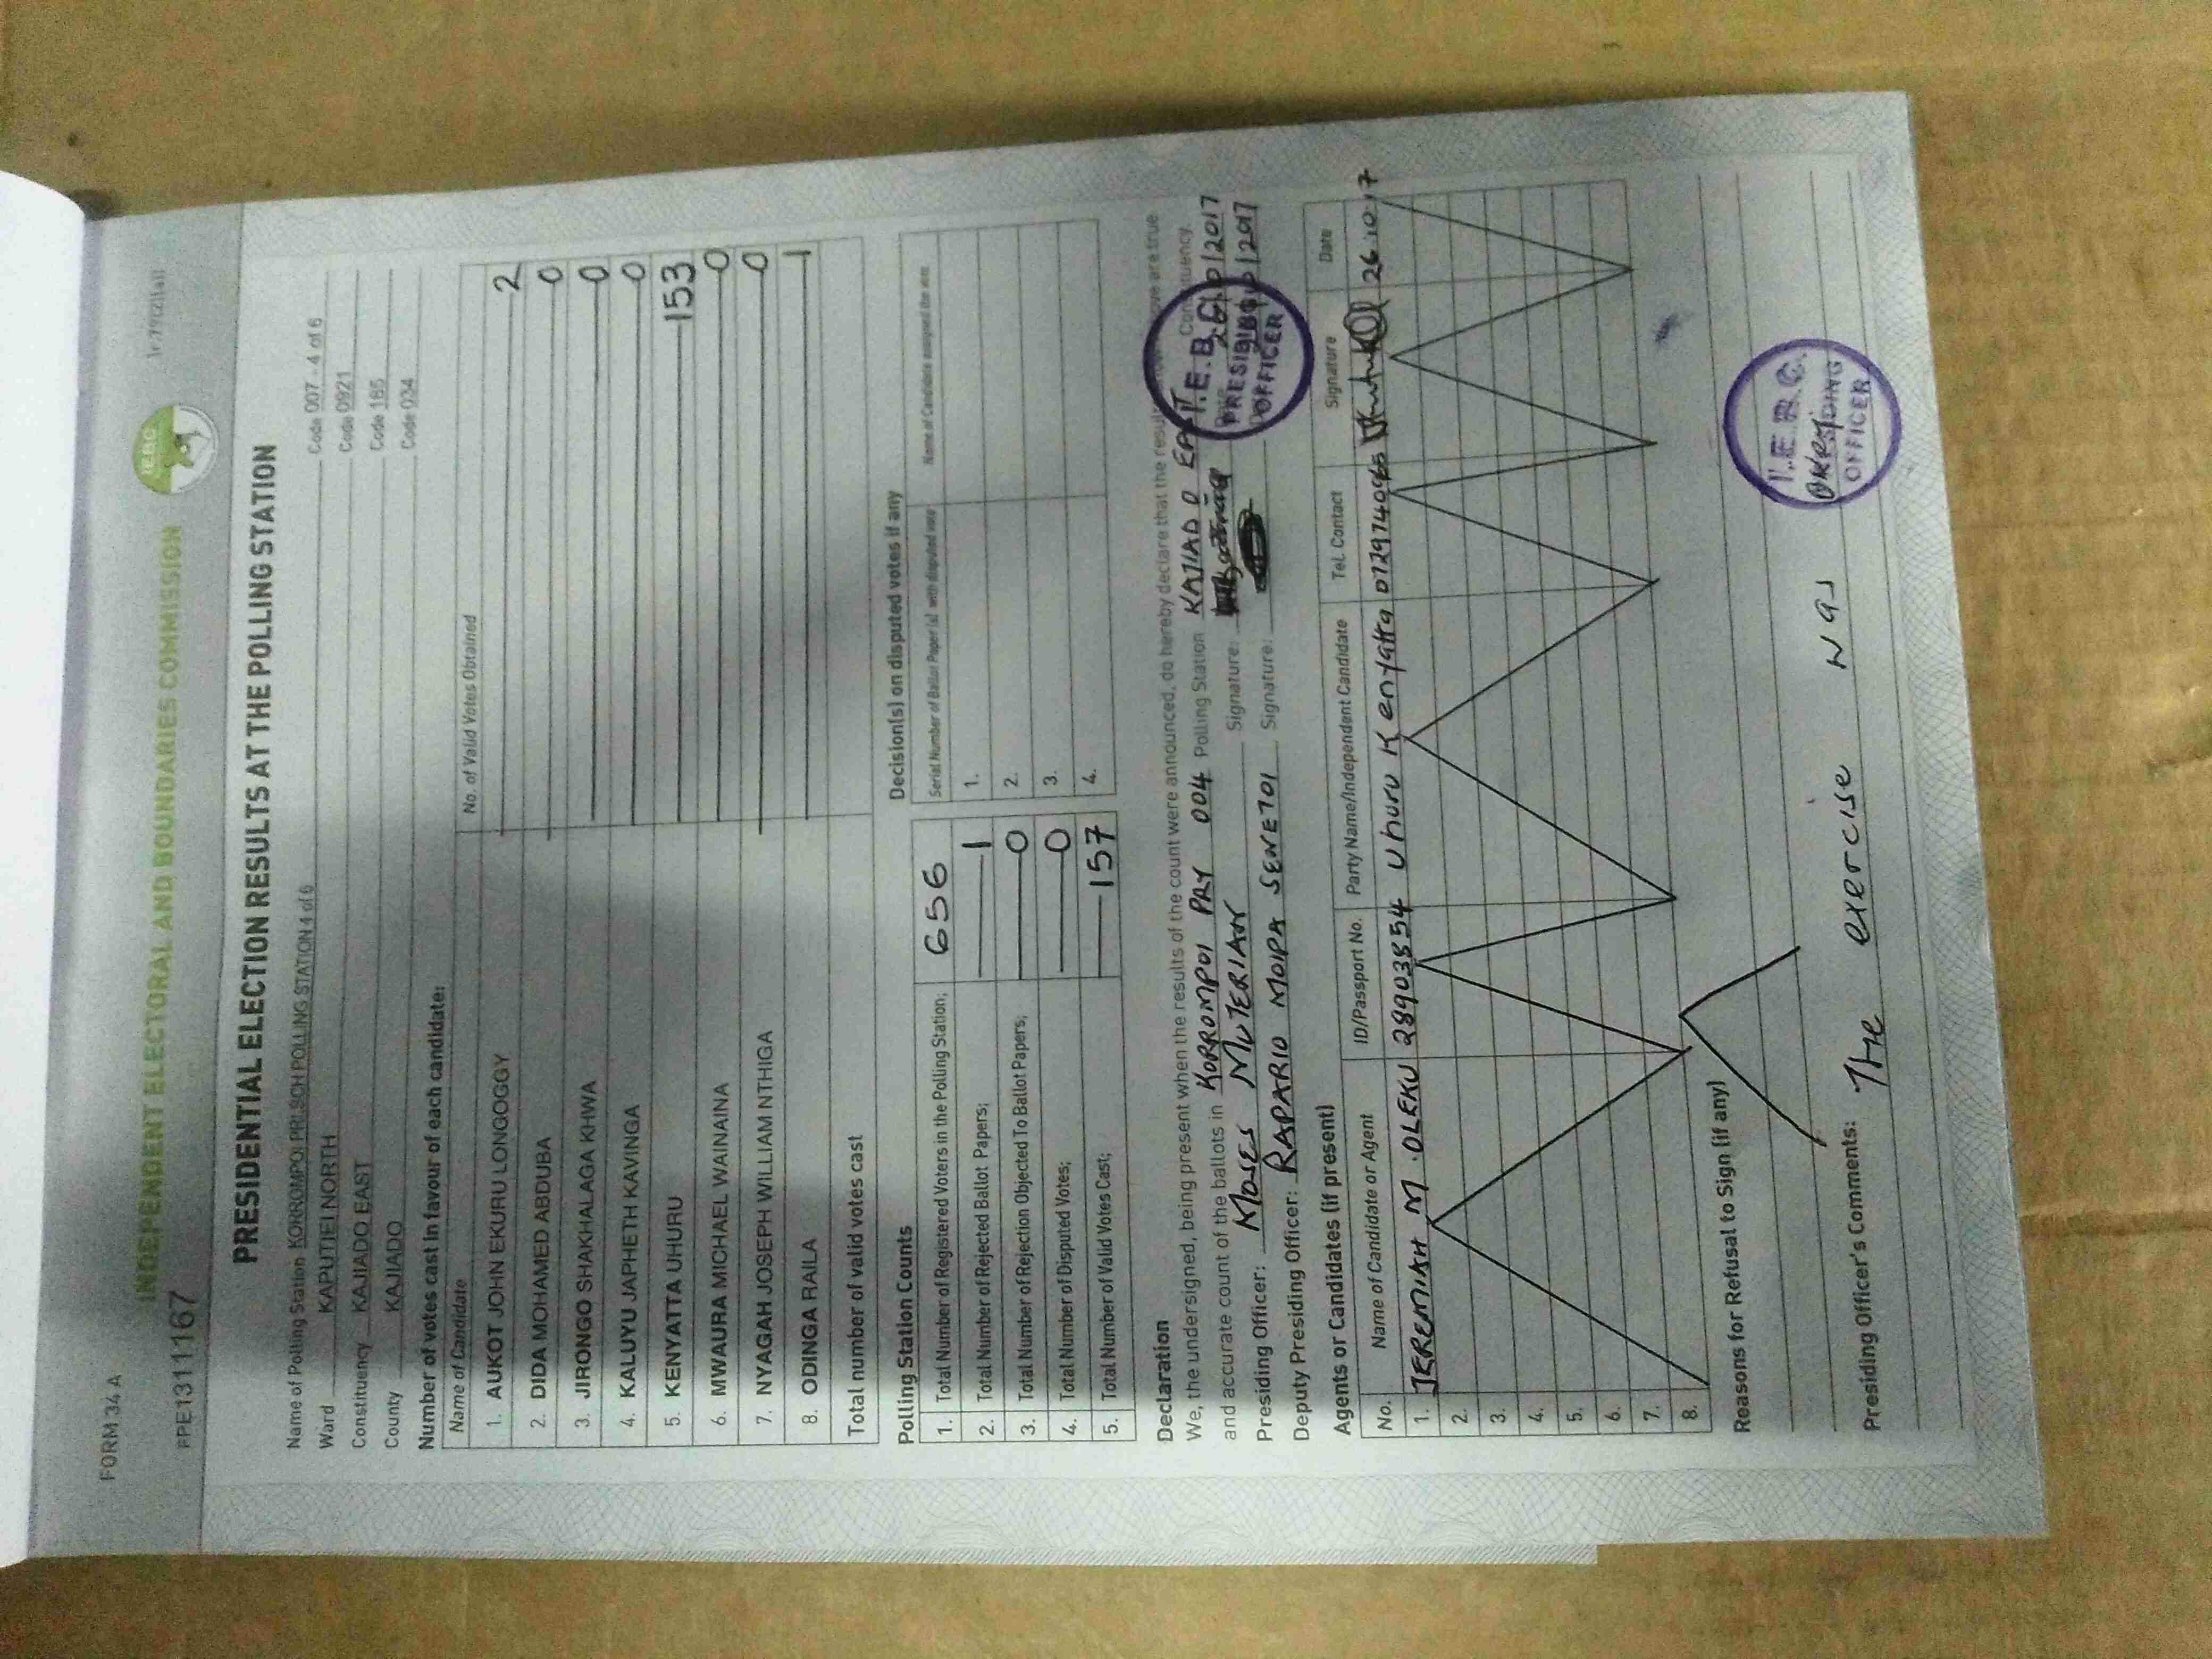 FORM 34 A
INDEPENDENT ELECTORAL AND BOUNDARIES COMMISSION
I.E.B.C
PRE1311167
PRESIDENTIAL ELECTION RESULTS AT THE POLLING STATION
Name of Polling Station KORROMPOI PRI.SCH POLLING STATION 4 of 6 Code 007 - 4 of 6
Ward KAPUTIEI NORTH Code 0921
Constituency KAJIADO EAST Code 185
County KAJIADO Code 034
Number of votes cast in favour of each candidate:
Name of Candidate No. of Valid Votes Obtained
1. AUKOT JOHN EKURU LONGOGGY 2
2. DIDA MOHAMED ABDUBA 0
3. JIRONGO SHAKHALAGA KHWA 0
4. KALUYU JAPHETH KAVINGA 0
5. KENYATTA UHURU 153
6. MWAURA MICHAEL WAINAINA 0
7. NYAGAH JOSEPH WILLIAM NTHIGA 0
8. ODINGA RAILA 1
Total number of valid votes cast
Polling Station Counts
1. Total Number of Registered Voters in the Polling Station; 656
2. Total Number of Rejected Ballot Papers; 1
3. Total Number of Rejection Objected To Ballot Papers; 0
4. Total Number of Disputed Votes; 0
5. Total Number of Valid Votes Cast; 157
Decision(s) on disputed votes if any
Serial Number of Ballot Paper (s) with disputed vote Name of Candidate assigned the vote
1.
2.
3.
4.
Declaration
We, the undersigned, being present when the results of the count were announced, do hereby declare that the results above are true
and accurate count of the ballots in KORROMPOI PRY 004 Polling Station KAJIADO EAST Constituency.
Presiding Officer: MOSES MUTERIAN Signature: Date: 26/10/2017
Deputy Presiding Officer: RAPARIO MOIPA SENETOI Signature: 10/2017
I.E.B.C.
PRESIDING
OFFICER
Agents or Candidates (if present)
No. Name of Candidate or Agent ID/Passport No. Party Name/Independent Candidate Tel. Contact Signature Date
1. JEREMIAH M. OLEKU 28903854 Uhuru Kenyatta 26.10.17
2.
3.
4.
5.
6.
7.
8.
Reasons for Refusal to Sign (if any)
Presiding Officer's Comments: The exercise was
I.E.B.C.
PRESIDING
OFFICER